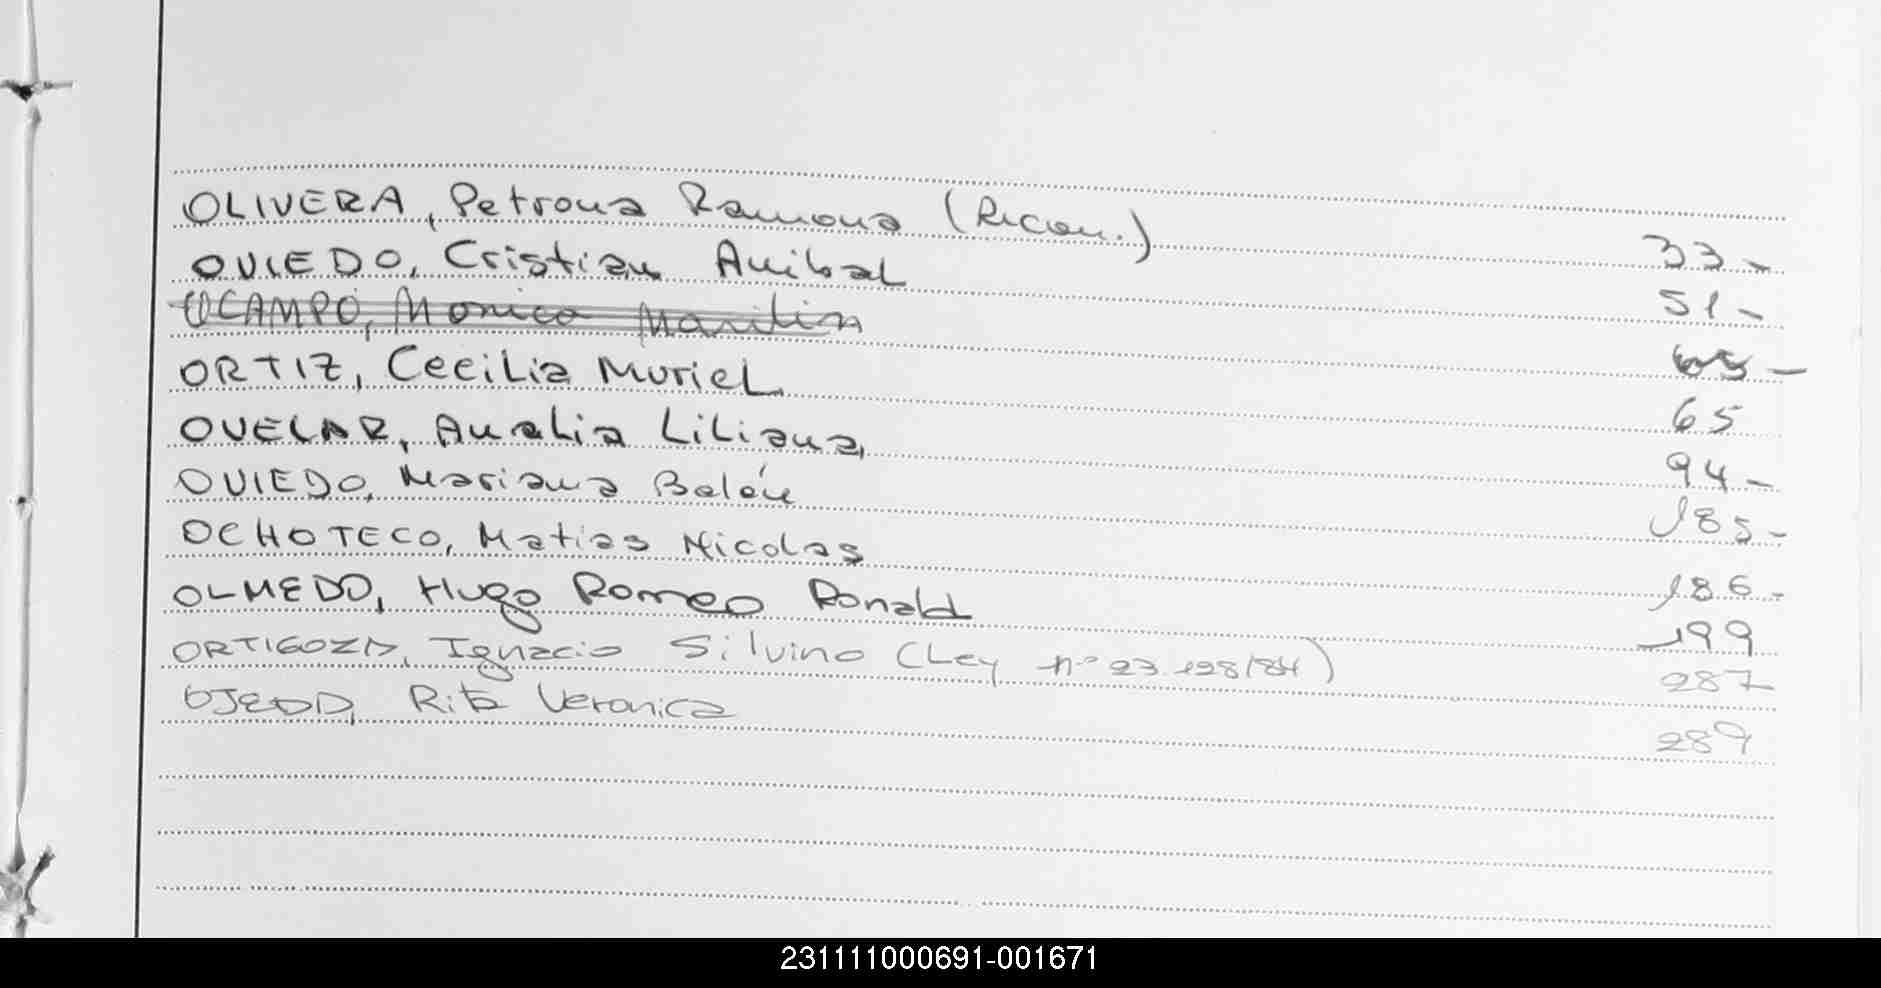 OLIVERA, Petrona Ramona (Recon.) 33-
OVIEDO, Cristian Anibal 51-
OCAMPO, Monica Marilin 65-
ORTIZ, Cecilia Muriel 65
OVELAR, Analia Liliana, 94-
OVIEDO, Mariana Belén 185-
OCHOTECO, Matias Nicolas 186-
OLMEDO, Hugo Romeo Ronald 199
ORTIGOZA, Ignacio Silvino (Ley nº 23.128/84) 287
OJEDA, Rita Veronica 289
231111000691-001671